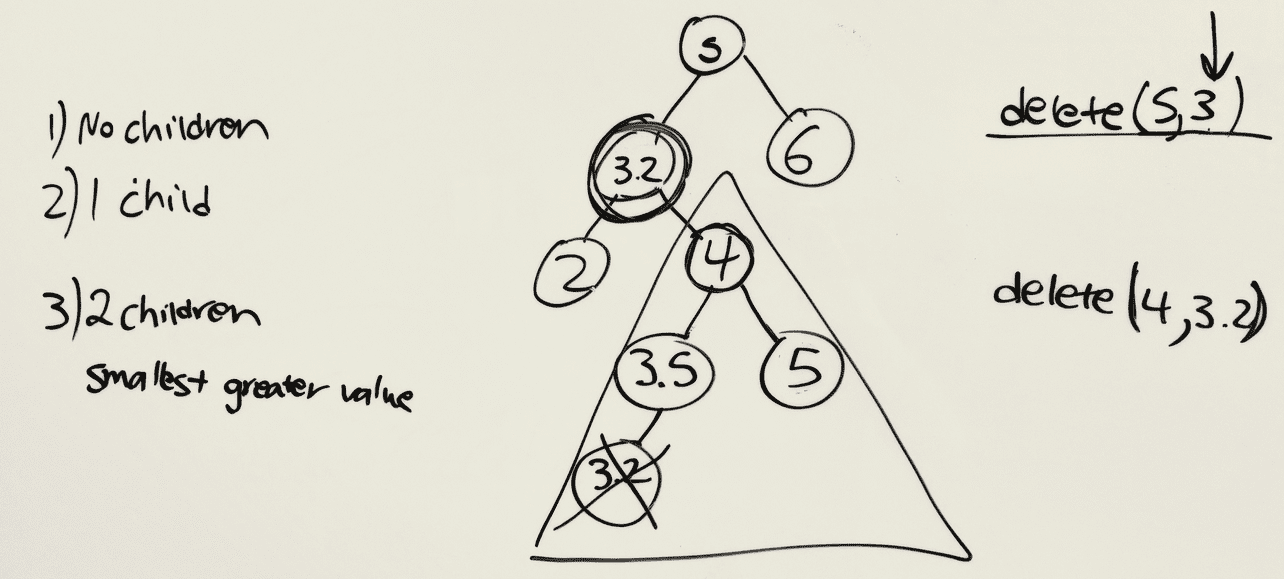 1) No children
2) 1 child
3) 2 children
smallest greater value
5
3.2
6
2
4
3.5
5
3.2
delete(5,3)
delete(4,3.2)